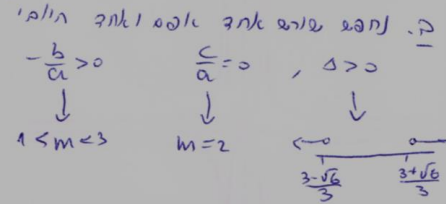 ב. נחפש שורש אחד אפס ואחד חיובי
-b/a > 0    c/a = 0 , Δ > 0
↓ ↓ ↓
1 < m < 3    m = 2
(3-√6)/3    (3+√6)/3